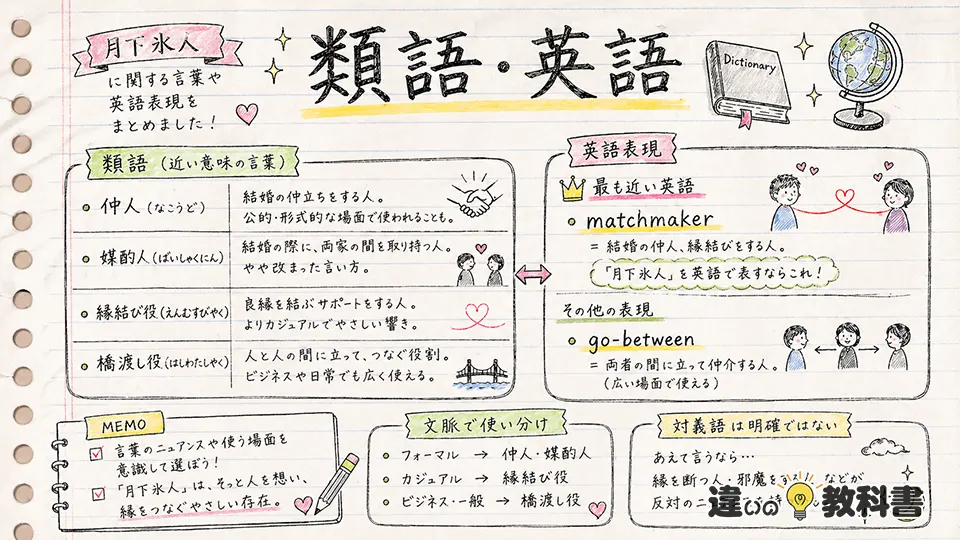 月下氷人
に関する言葉や
英語表現を
まとめました！
類語・英語
Dictionary
類語（近い意味の言葉）
仲人（なこうど）
結婚の仲立ちをする人。
公的・形式的な場面で使われることも。
媒酌人（ばいしゃくにん）
結婚の際に、両家の間を取り持つ人。
やや改まった言い方。
縁結び役（えんむすびやく）
良縁を結ぶサポートをする人。
よりカジュアルでやさしい響き。
橋渡し役（はしわたしやく）
人と人の間に立って、つなぐ役割。
ビジネスや日常でも広く使える。
英語表現
最も近い英語
matchmaker
= 結婚の仲人、縁結びをする人。
「月下氷人」を英語で表すならこれ！
その他の表現
go-between
= 両者の間に立って仲介する人。
（広い場面で使える）
MEMO
言葉のニュアンスや使う場面を
意識して選ぼう！
「月下氷人」は、そっと人を想い、
縁をつなぐやさしい存在。
文脈で使い分け
フォーマル → 仲人・媒酌人
カジュアル → 縁結び役
ビジネス・一般 → 橋渡し役
対義語は明確ではない
あえて言うなら…
縁を断つ人・邪魔を などが
反対のニ
違いの教科書